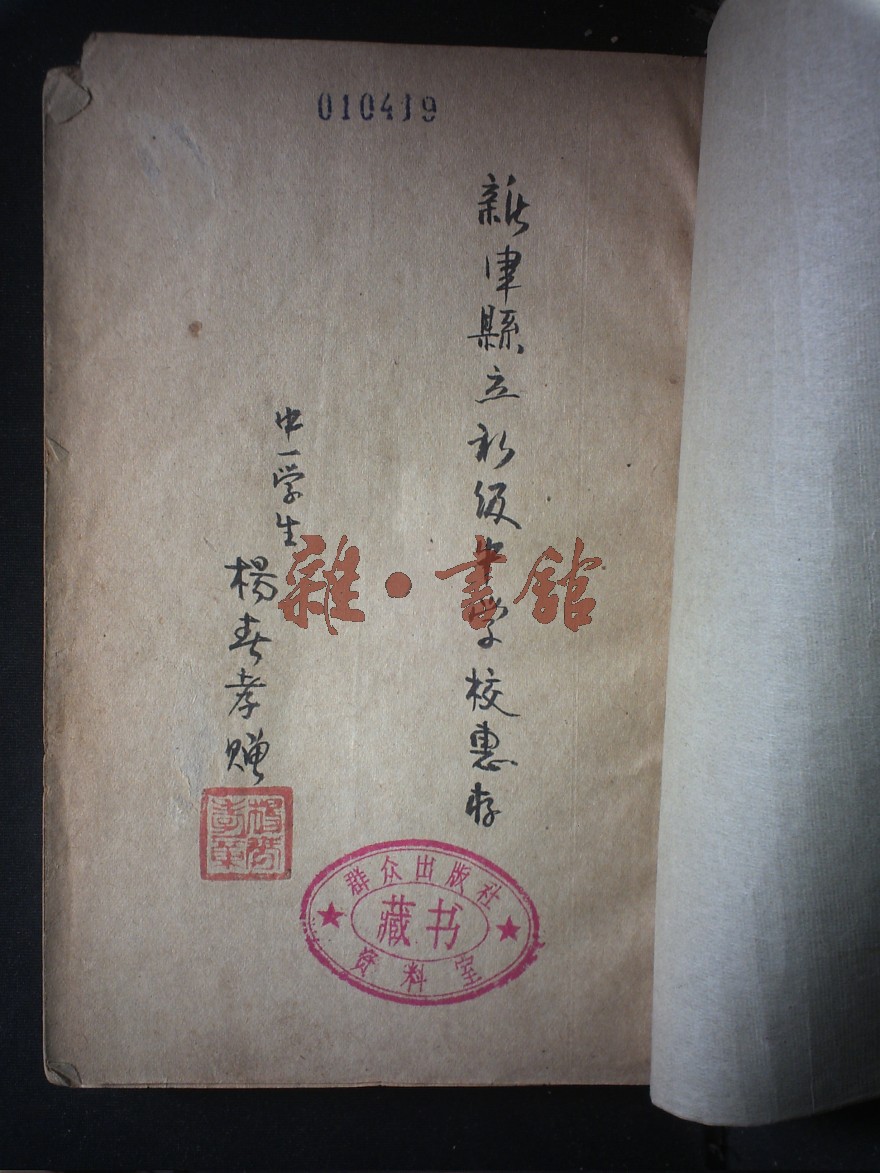 010419
新津縣立初级中学校惠存
中一学生
楊春孝赠
雜·書館
群众出版社
藏书
资料室